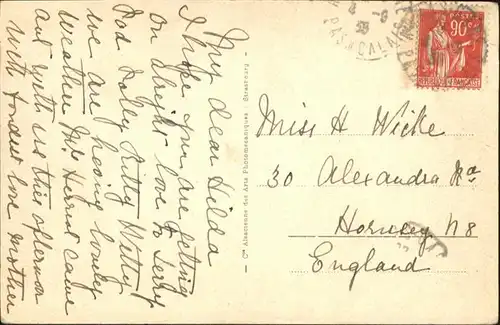 My dear Hilda
I hope you are getting
on alright love to Jerry
Pad Polly Kitty Hetty
we are having lovely
weather Mr Harris came
and with us this afternoon
with fondest love Mother
Cie Alsacienne des Arts Photomécaniques - Strasbourg
8 -8
35
PAS DE CALAIS
POSTES
90c
REPUBLIQUE FRANÇAISE
Miss H Wicke
30 Alexandra Rd
Hornsey N8
England